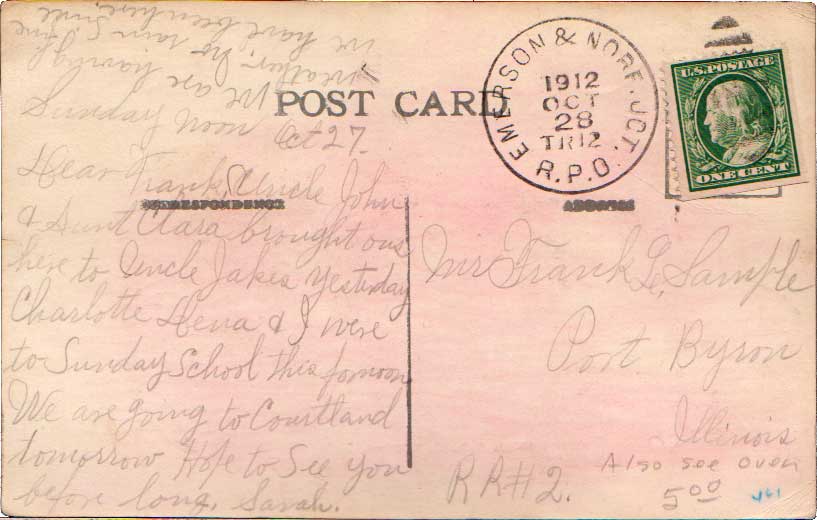 POST CARD
EMERSON & NORF. JCT.
1912
OCT
28
TR 12
R.P.O.
U.S. POSTAGE
ONE CENT
CORRESPONDENCE
ADDRESS
Sunday noon Oct 27.
Dear Frank, Uncle John
& Aunt Clara brought ous
here to Uncle Jakes yesterday
Charlotte Lena & I were
to Sunday School this fornoon
We are going to Courtland
tomorrow Hope to See you
before long. Sarah.
We are having
weather, no rain Since
we have been here.
Mr Frank L. Sample
Port Byron
Illinois
RR#2.
Also see over
5.00
461